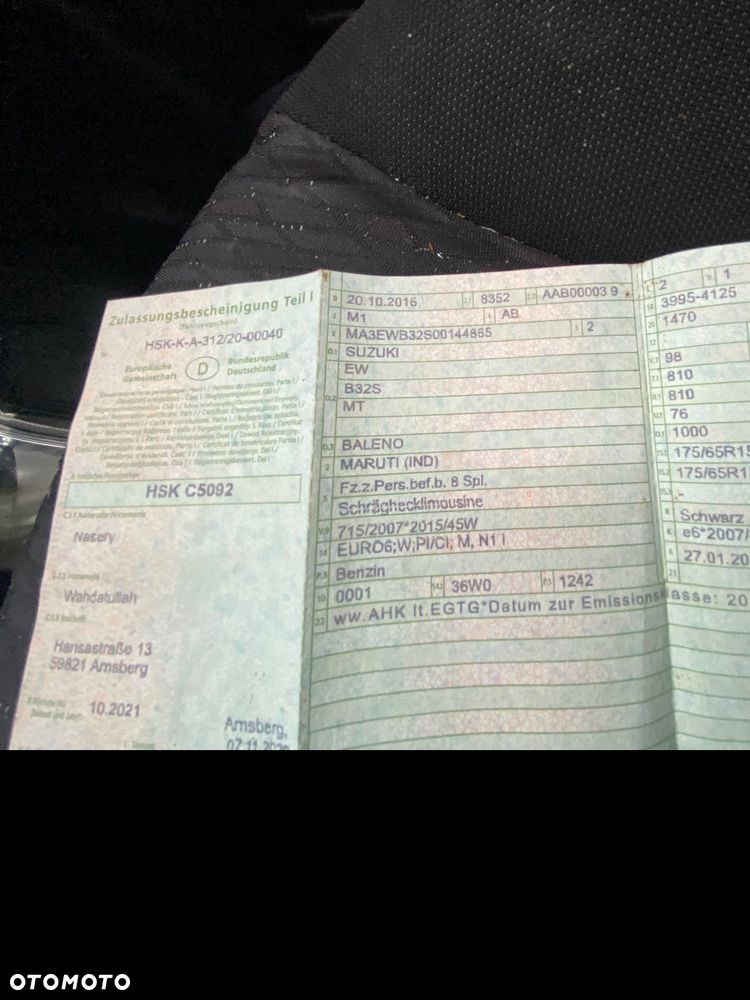 Zulassungsbescheinigung Teil I
(Fahrzeugschein)
Nr. HSK-K-A-312/20-00040
Europäische Gemeinschaft
D
Bundesrepublik Deutschland
HSK C5092
C.1.1 Name oder Firmenname
Nasery
C.1.2 Vorname(n)
Wahdatullah
C.1.3 Anschrift
Hansastraße 13
59821 Arnsberg
10.2021
Arnsberg,
07.11.2020
B 20.10.2016 2.1 8352 2.2 AAB00003 9
J M1 4 AB
E MA3EWB32S00144865 3 2
D.1 SUZUKI
EW
D.2 B32S
MT
D.3 BALENO
2 MARUTI (IND)
5 Fz.z.Pers.bef.b. 8 Spl.
Schräghecklimousine
V.9 715/2007*2015/45W
14 EURO6;W;PI/CI; M, N1 I
P.3 Benzin
10 0001 14.1 36W0 P.1 1242
22 ww.AHK lt.EGTG*Datum zur Emissionsklasse: 20
L 2 9 1
18 3995-4125
20 1470
V.7 98
7.1 810
8.1 810
U.1 76
O.1 1000
15.1 175/65R15
15.2 175/65R15
15.3
R Schwarz
K e6*2007/
6 27.01.20
21
OTOMOTO